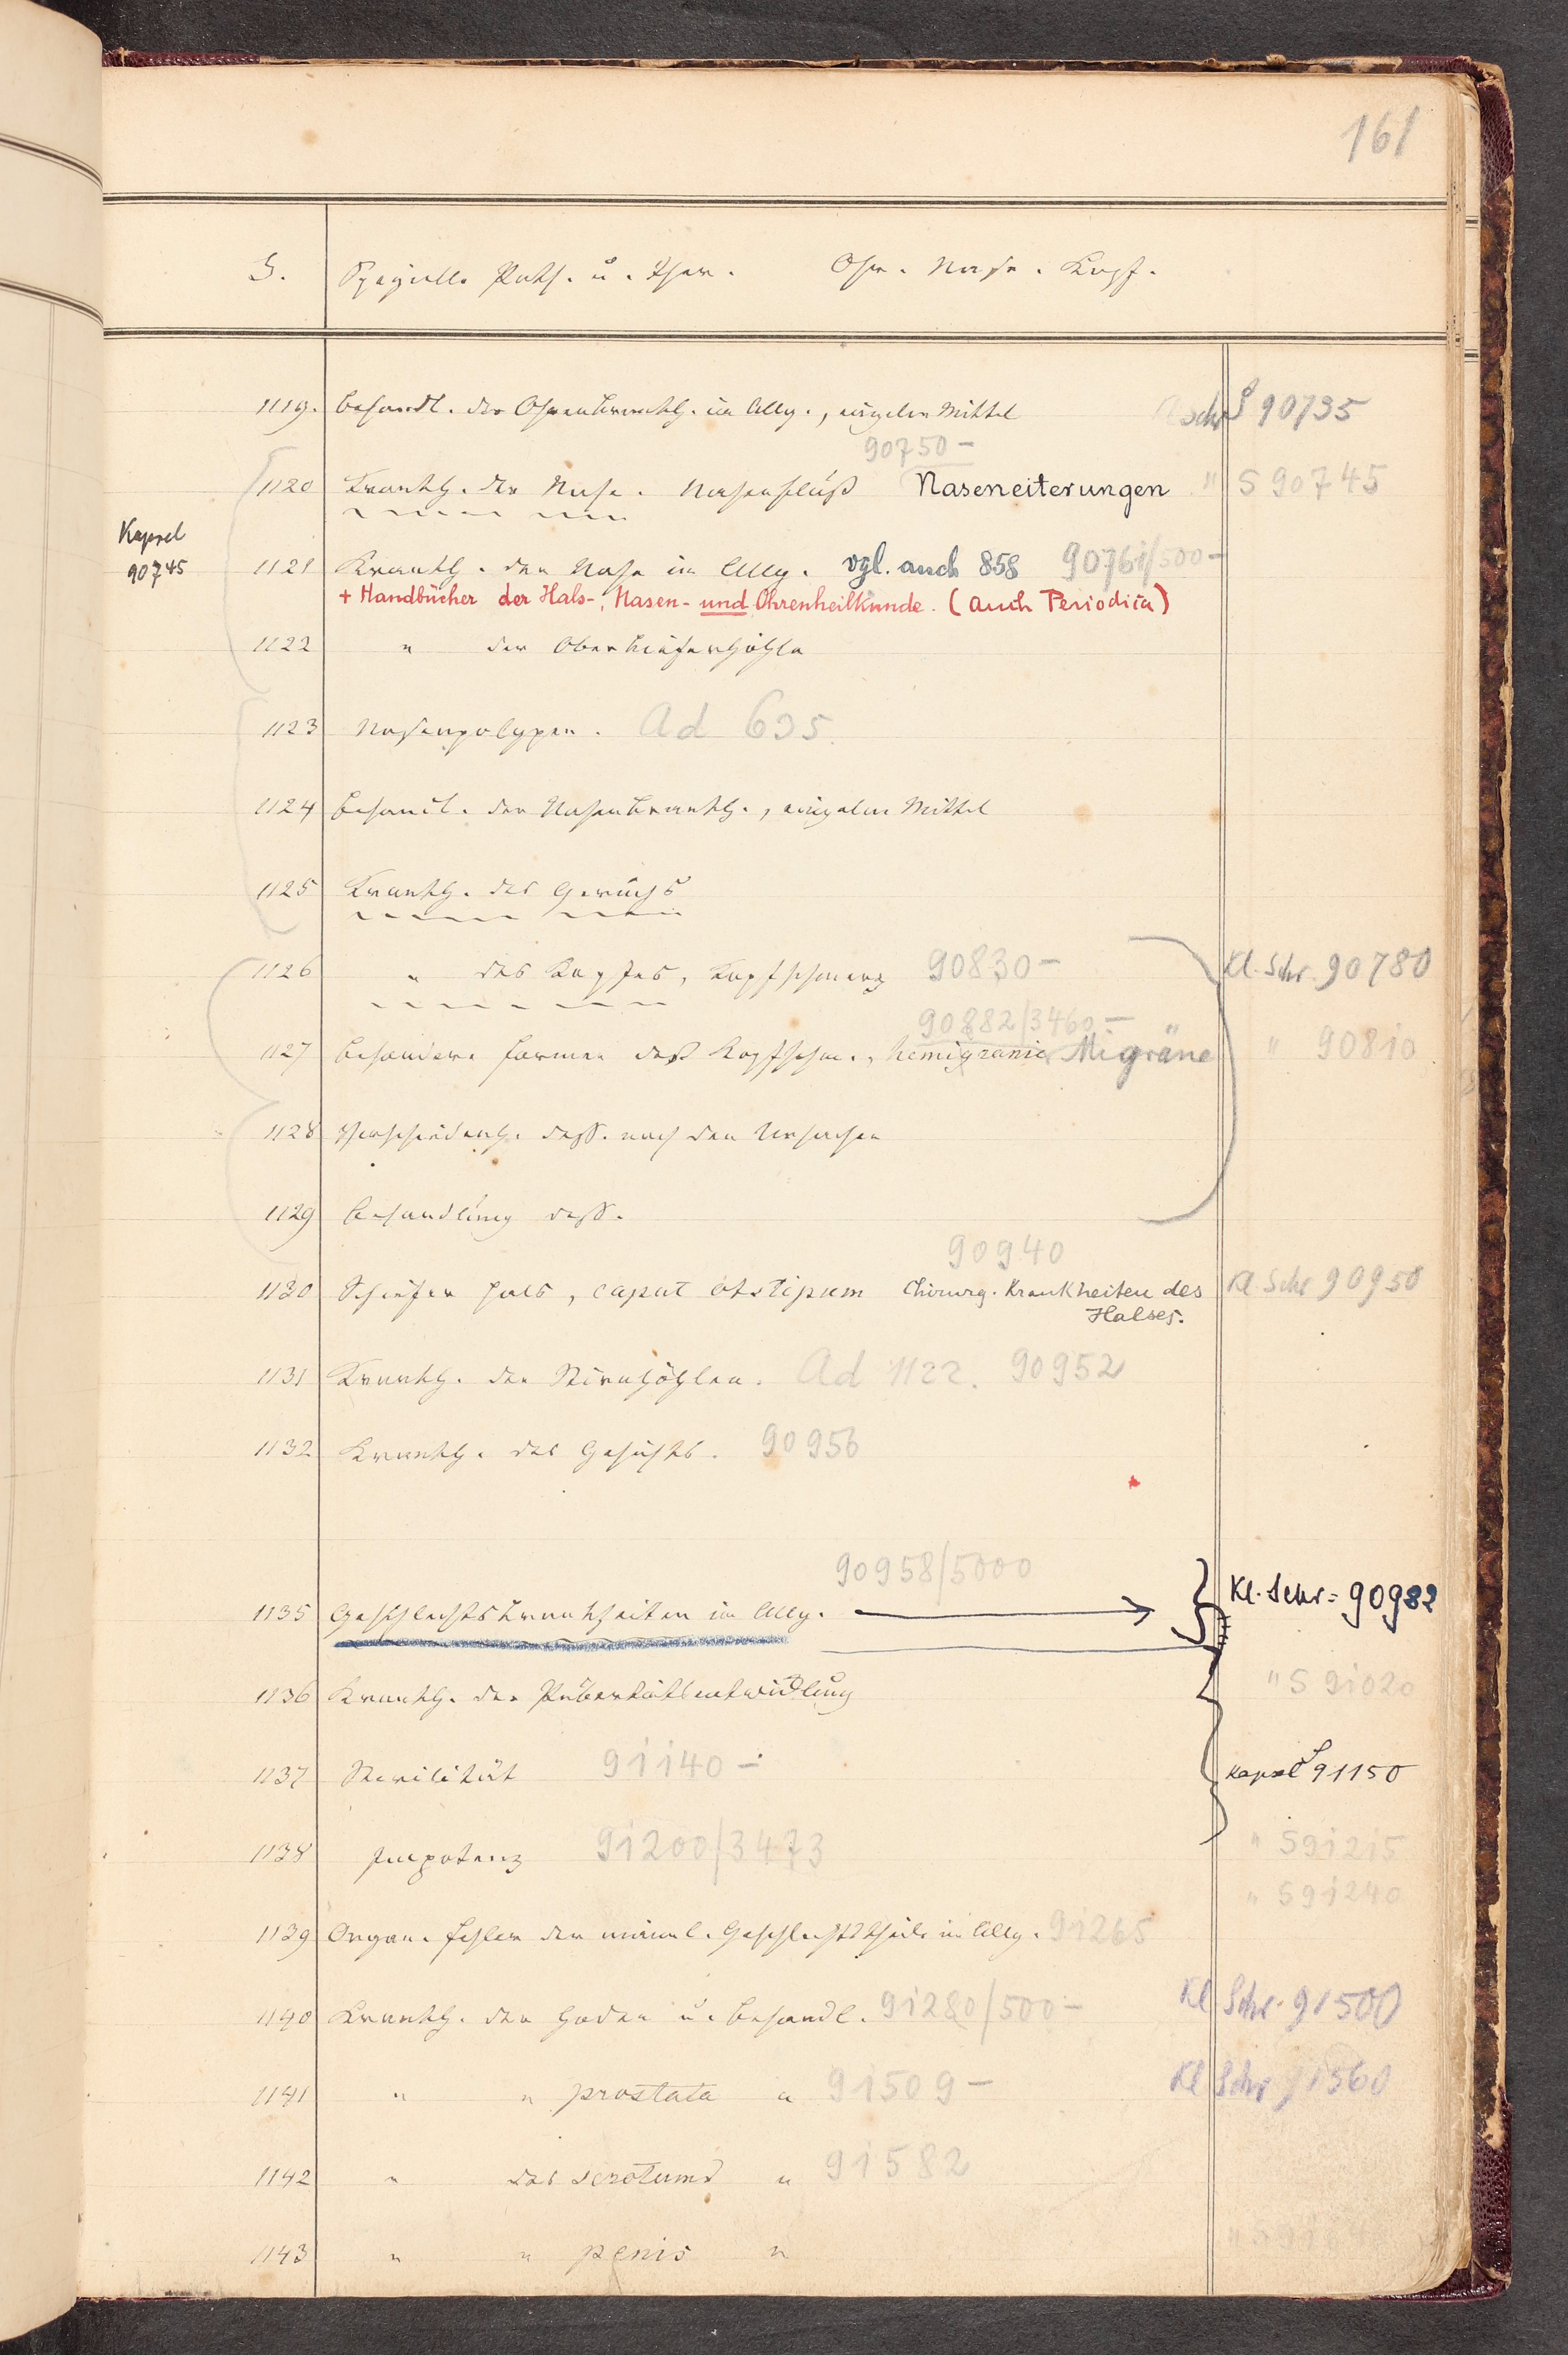 161
S. Spezielle Path. u. Ther. Ohr. Nase. Kopf.
1119. Behandl. der Ohrenkrankh. im Allg., einzelne Mittel S 90735
90750 -
1120 Krankh. der Nase. Nasenfluß Naseneiterungen " S 90745
Kapsel
90745
1121 Krankh. der Nase im Allg. vgl. auch 858 90761/500-
+ Handbücher der Hals-, Nasen- und Ohrenheilkunde. (auch Periodica)
1122 " der Oberkieferhöhle
1123 Nasenpolypen. Ad 635.
1124 Behandl. der Nasenkrankh., einzelne Mittel
1125 Krankh. des Geruchs
1126 " des Kopfes, Kopfschmerz 90830- Kl. Schr. 90780
90882/3460.-
1127 Besondere Formen des Kopfschm., Hemigranie Migräne " 90810
1128 Verschiedenh. dess. nach den Ursachen
1129 Behandlung dess.
90940
1130 Schiefer Hals, caput obstipum Chirurg. Krankheiten des Kl. Schr 90950
Halses.
1131 Krankh. der Stirnhöhlen. Ad 1122. 90952
1132 Krankh. des Gesichts. 90956
90958/5000
1135 Geschlechtskrankheiten im Allg. Kl. Schr= 90982
1136 Krankh. der Pubertätsentwicklung " S 91020
1137 Sterilität 91140 - Kapsel 91150
1138 Impotenz 91200/3473 " S 91215
" S 91240
1139 Organ. Fehler der männl. Geschlechtstheile im Allg. 91265
1140 Krankh. der Hoden u. Behandl. 91280/500- Kl Schr. 91500
1141 " " prostata " 91509- Kl Schr 91560
1142 " des scrotums " 91582
1143 " " penis "